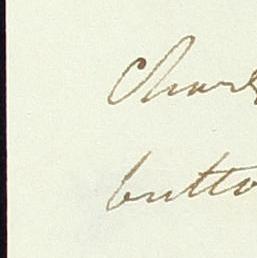 Chare
butto